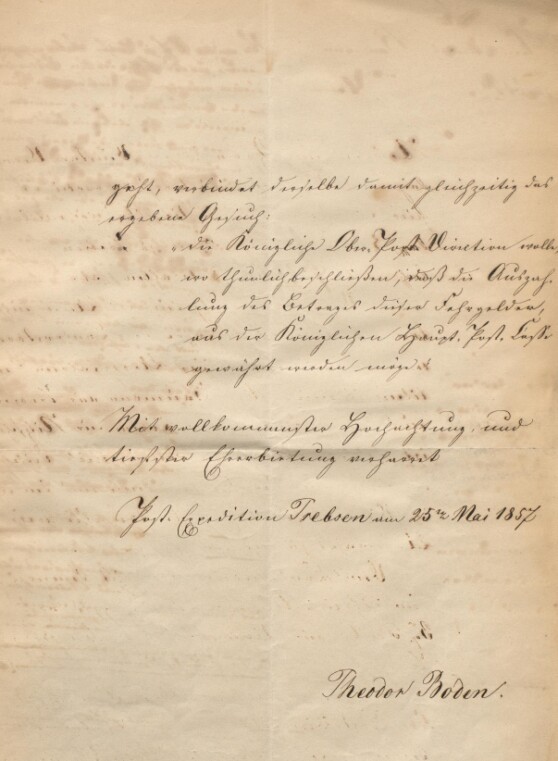 geht, verbindet derselbe damit gleichzeitig das
ergebene Gesuch:
die Königliche Ober-Post-Direction wolle,
wo thunlich beschließen, daß die Auszah-
lung des Betrages dieser Fuhrgelder,
aus der Königlichen Haupt-Post-Casse
gewährt werden möge.
Mit vollkommenster Hochachtung und
tiefster Ehrerbietung verharret
Post-Expedition Trebsen am 25ten Mai 1857
Theodor Boden.